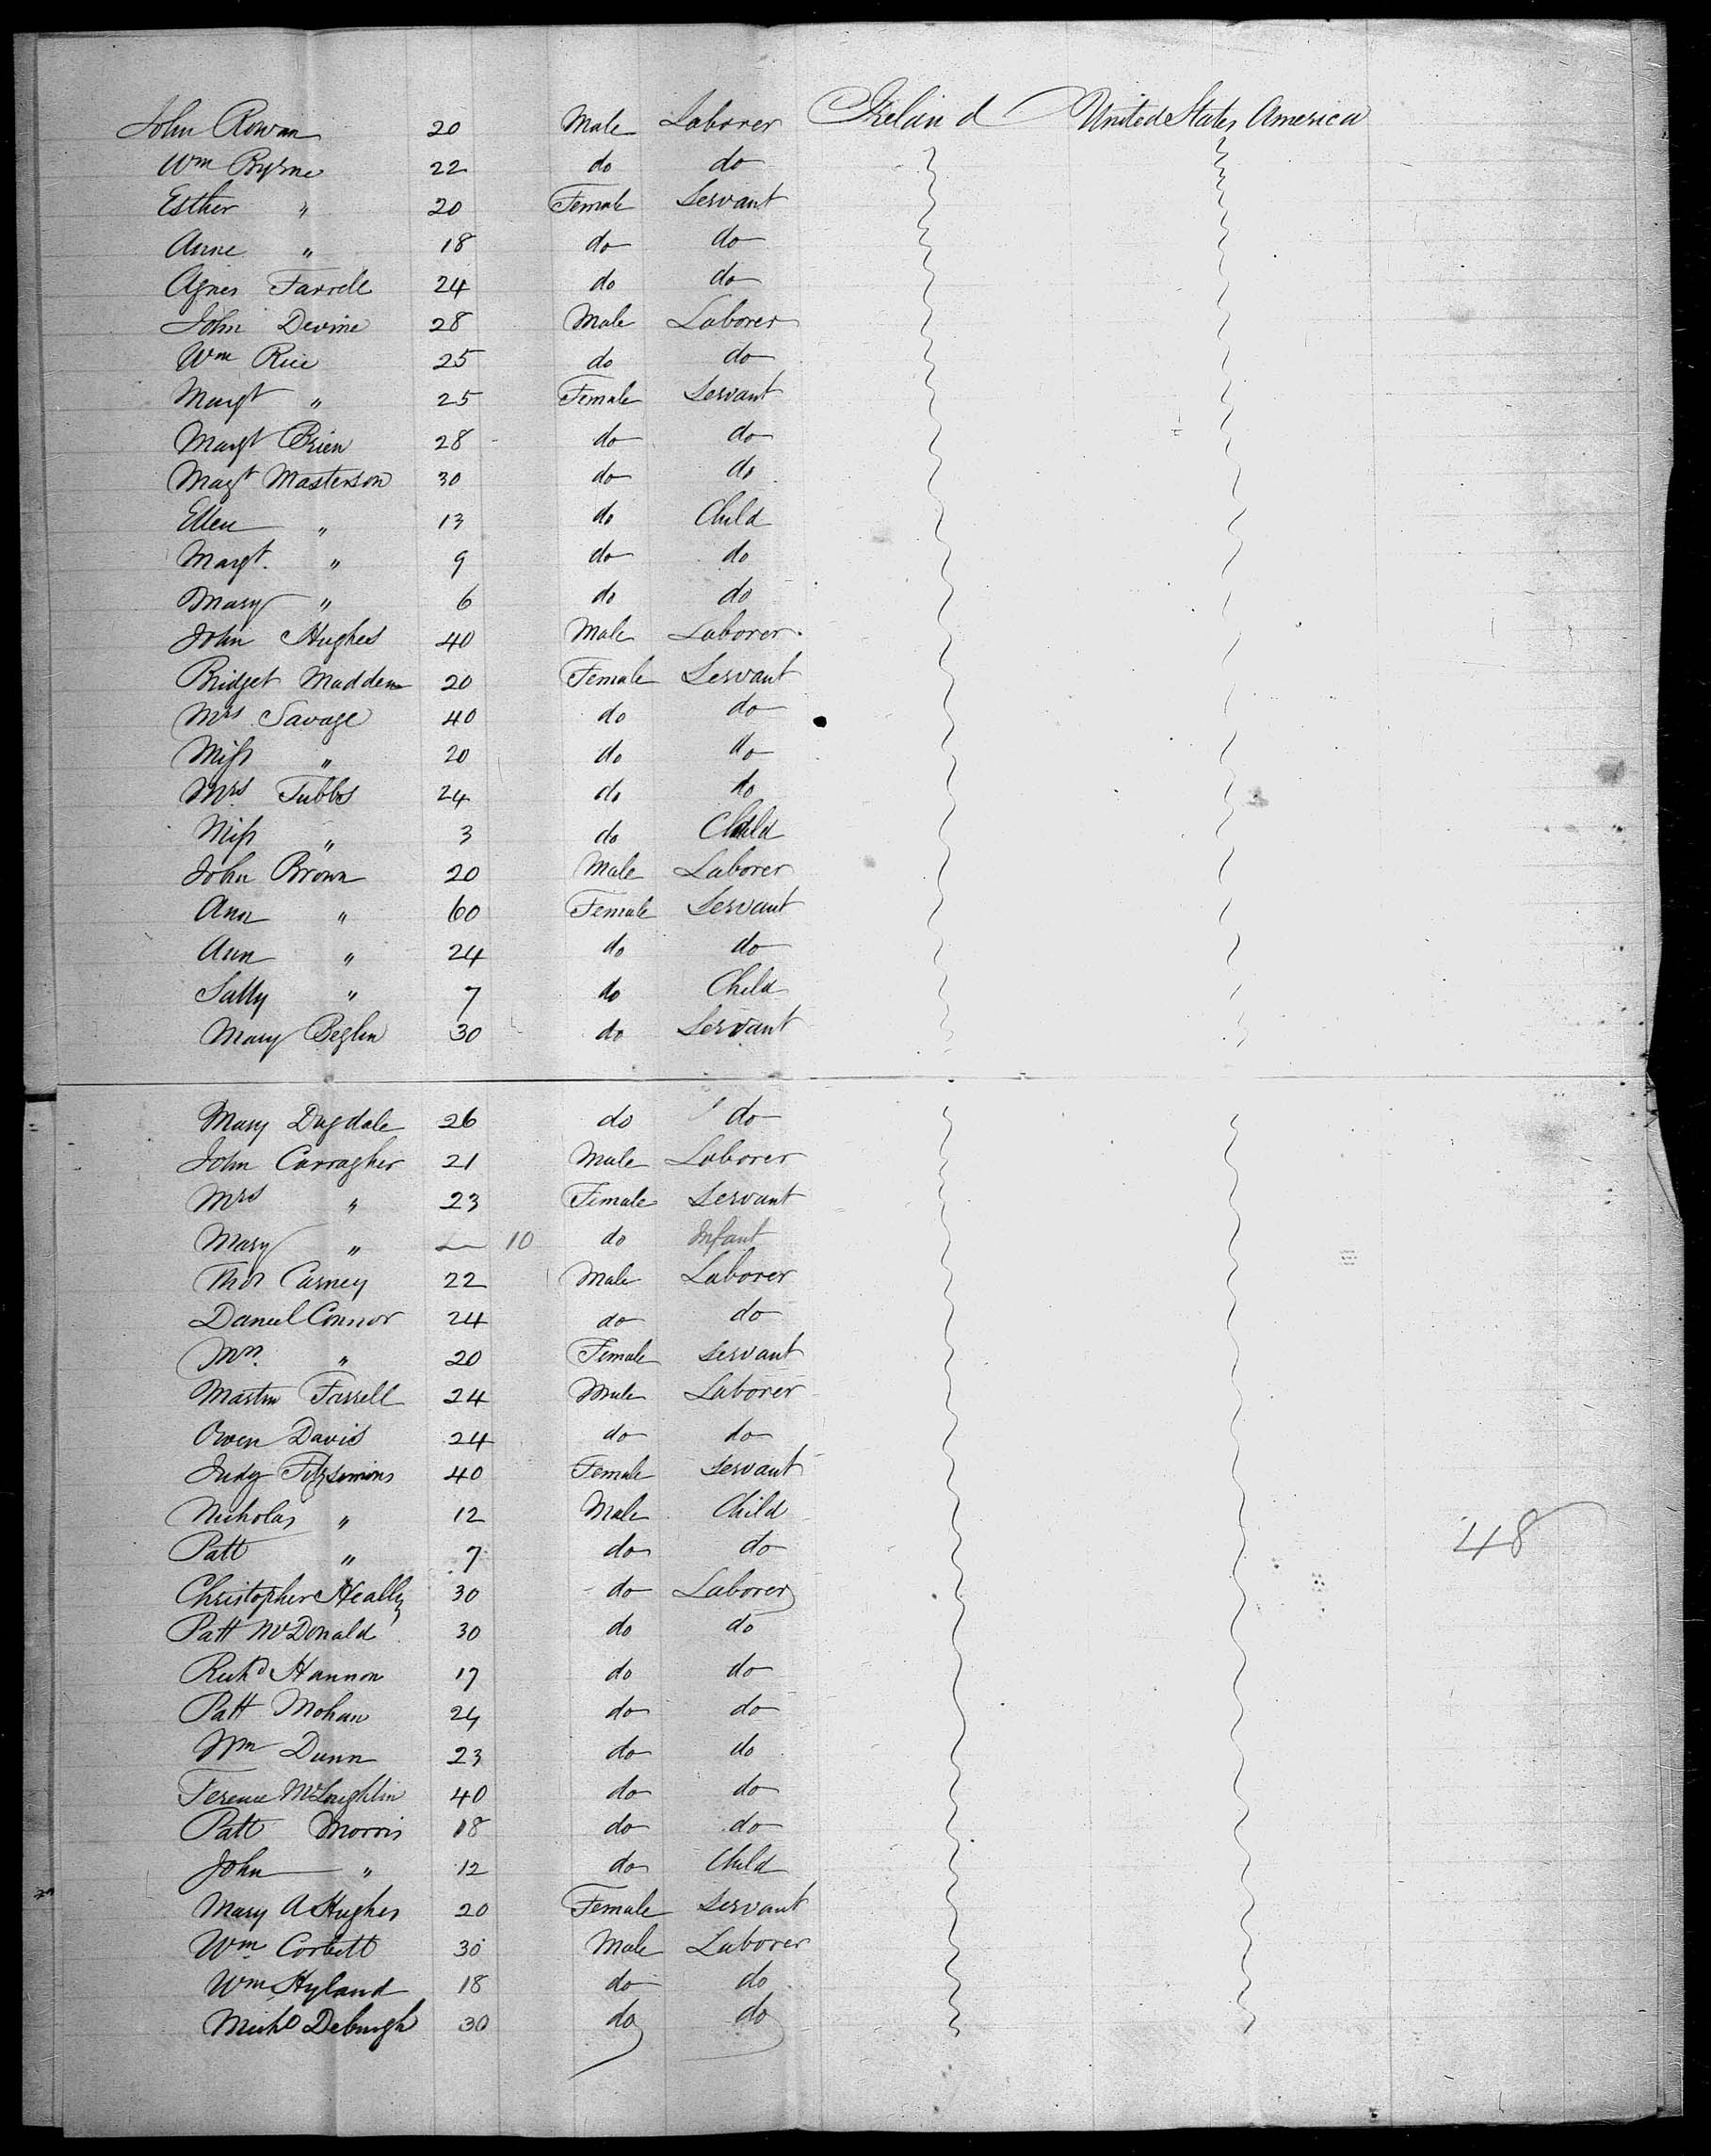 John Rowan 20 Male Laborer Ireland United States America
Wm Byrne 22 do do
Esther " 20 Female Servant
Anne " 18 do do
Agnes Farrell 24 do do
John Devine 28 Male Laborer
Wm Rice 25 do do
Margt " 25 Female Servant
Margt Brien 28 do do
Magt Masterson 30 do do
Ellen " 13 do Child
Margt. " 9 do do
Mary " 6 do do
John Hughes 40 Male Laborer
Bridget Madden 20 Female Servant
Mrs Savage 40 do do
Miss " 20 do do
Mrs Tubbs 24 do do
Miss " 3 do Child
John Brown 20 Male Laborer
Ann " 60 Female Servant
Ann " 24 do do
Sally " 7 do Child
Mary Beglin 30 do Servant
Mary Dugdale 26 do do
John Carragher 21 Male Laborer
Mrs " 23 Female Servant
Mary " 10 do Infant
Thos Carney 22 Male Laborer
Daniel Connor 24 do do
Mrs. " 20 Female Servant
Martin Farrell 24 Male Laborer
Owen Davis 24 do do
Judy Fitzsimons 40 Female Servant
Nicholas " 12 Male Child
Patt " 7 do do 48
Christopher Heally 30 do Laborer
Patt McDonald 30 do do
Richd Hannon 17 do do
Patt Mohan 24 do do
Wm Dunn 23 do do
Terence McLoughlin 40 do do
Patt Morris 18 do do
John " 12 do Child
Mary A Hughes 20 Female Servant
Wm Corbett 30 Male Laborer
Wm Hyland 18 do do
Michl Deburgh 30 do do